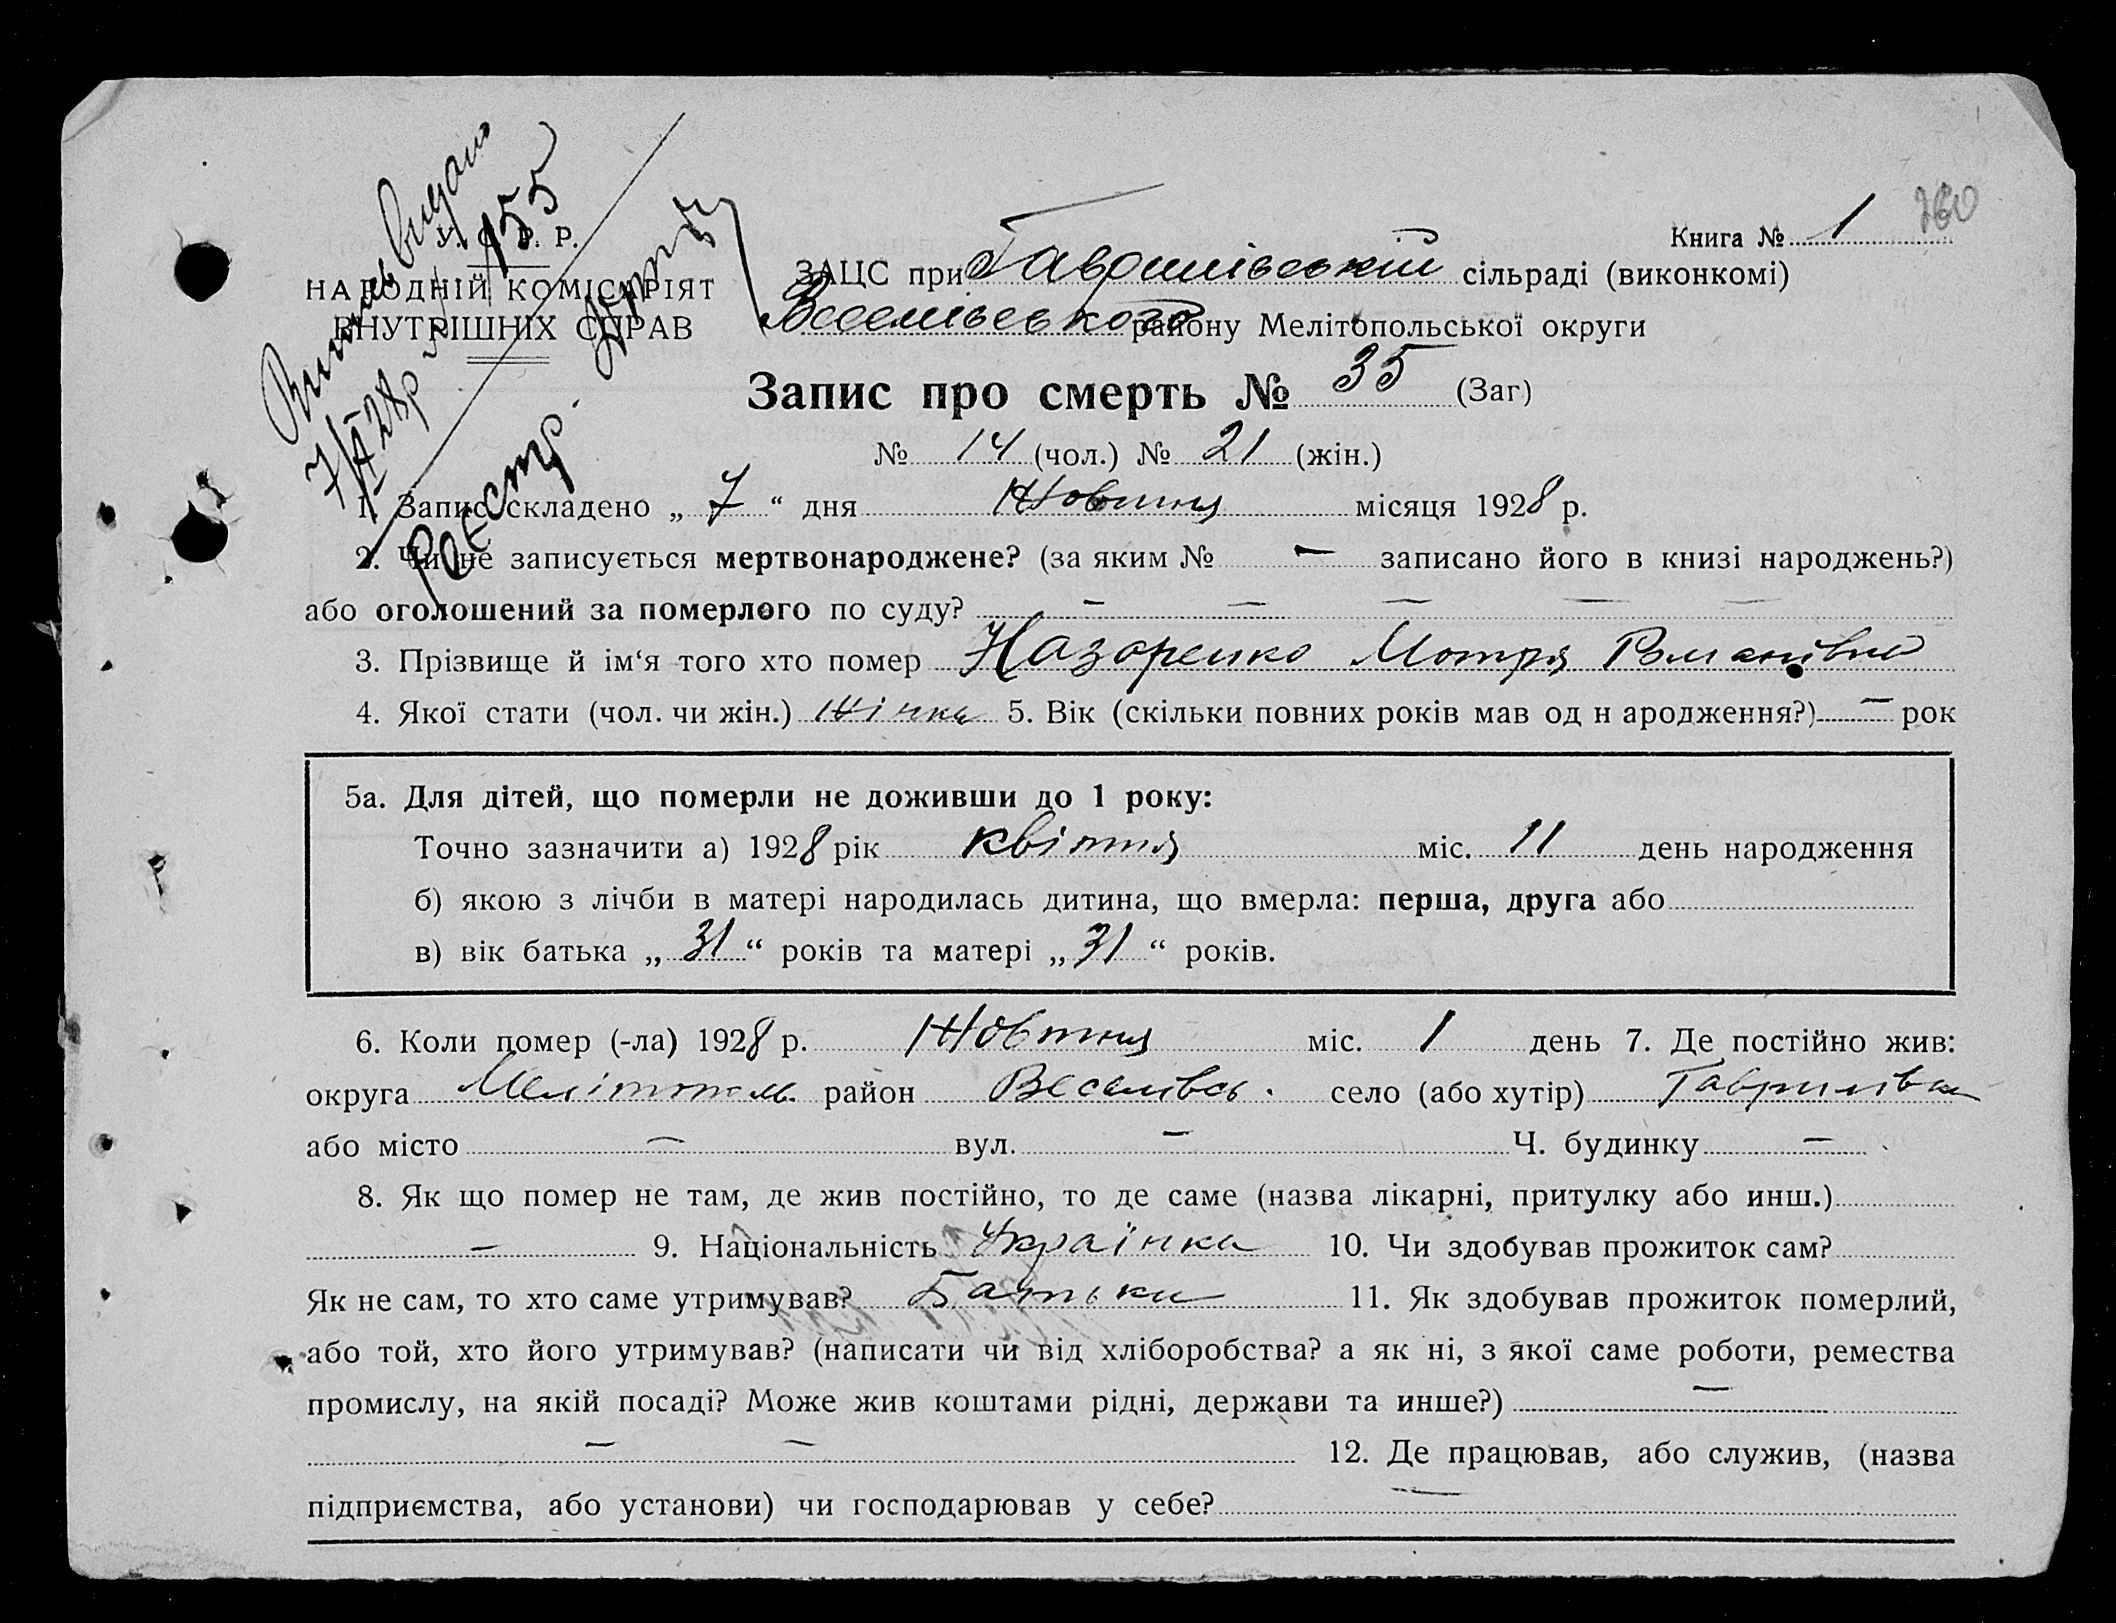 Книга № 1 260
Виписъ видано
7/X 28р № 155
Реєстр.
У. С. Р. Р.
НАРОДНІЙ КОМІСАРІЯТ
ВНУТРІШНІХ СПРАВ
ЗАЦС при Гаврилівській сільраді (виконкомі)
Веселівського району Мелітопольської округи
Запис про смерть № 35 (Заг)
№ 14 (чол.) № 21 (жін.)
1. Запис складено „ 7 “ дня Жовтня місяця 1928 р.
2. Чи не записується мертвонароджене? (за яким № — записано його в книзі народжень?)
або оголошений за померлого по суду? — — — — —
3. Прізвище й ім‘я того хто помер Назаренко Мотря Романівна
4. Якої стати (чол. чи жін.) жінка 5. Вік (скільки повних років мав од н ародження?) — рок
5а. Для дітей, що померли не доживши до 1 року:
Точно зазначити а) 1928 рік квітня міс. 11 день народження
б) якою з лічби в матері народилась дитина, що вмерла: перша, друга або
в) вік батька „ 31 “ років та матері „ 31 “ років.
6. Коли помер (-ла) 1928 р. Жовтня міс. 1 день 7. Де постійно жив:
округа Мелітополь. район Веселівсь. село (або хутір) Гаврилівка
або місто — вул. — Ч. будинку —
8. Як що помер не там, де жив постійно, то де саме (назва лікарні, притулку або инш.)
— 9. Національність Українка 10. Чи здобував прожиток сам?
Як не сам, то хто саме утримував? Батьки 11. Як здобував прожиток померлий,
або той, хто його утримував? (написати чи від хліборобства? а як ні, з якої саме роботи, ремества
промислу, на якій посаді? Може жив коштами рідні, держави та инше?) —
— — 12. Де працював, або служив, (назва
підприємства, або установи) чи господарював у себе? —